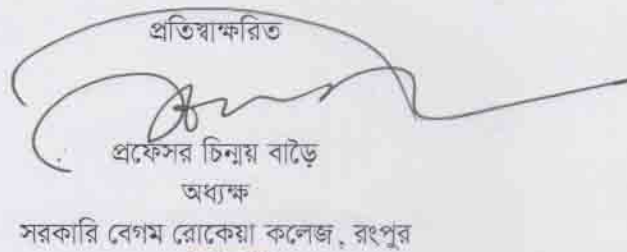 প্রতিস্বাক্ষরিত
প্রফেসর চিন্ময় বাড়ৈ
অধ্যক্ষ
সরকারি বেগম রোকেয়া কলেজ, রংপুর